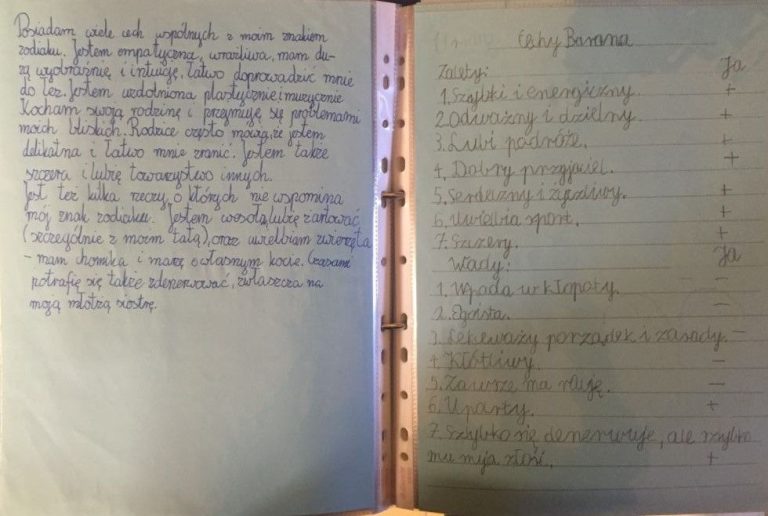 Posiadam wiele cech wspólnych z moim znakiem
zodiaku. Jestem empatyczna, wrażliwa, mam du-
żą wyobraźnię i intuicję, łatwo doprowadzić mnie
do łez. Jestem uzdolniona plastycznie i muzycznie
Kocham swoją rodzinę i przejmuję się problemami
moich bliskich. Rodzice często mówią, że jestem
delikatna i łatwo mnie zranić. Jestem także
szczera i lubię towarzystwo innych.
Jest też kilka rzeczy, o których nie wspomina
mój znak zodiaku. Jestem wesoła, lubię żartować
(szczególnie z moim tatą), oraz uwielbiam zwierzęta
- mam chomika i marzę o własnym kocie. Czasami
potrafię się także zdenerwować, zwłaszcza na
moją młotrzą siostrę.
Cechy Barana
Zalety: Ja
1. Szybki i energiczny. +
2. Odważny i dzielny. +
3. Lubi podróże. +
4. Dobry przyjaciel. +
5. Serdeczny i życzliwy. +
6. Uwielbia sport. +
7. Szczery. +
Wady: Ja
1. Wpada w kłopoty. -
2. Egoista. -
3. Lekceważy porządek i zasady. -
4. Kłótliwy. -
5. Zawsze ma rację. -
6. Uparty. +
7. Szybko się denerwuje, ale szybko
mu mija złość. +